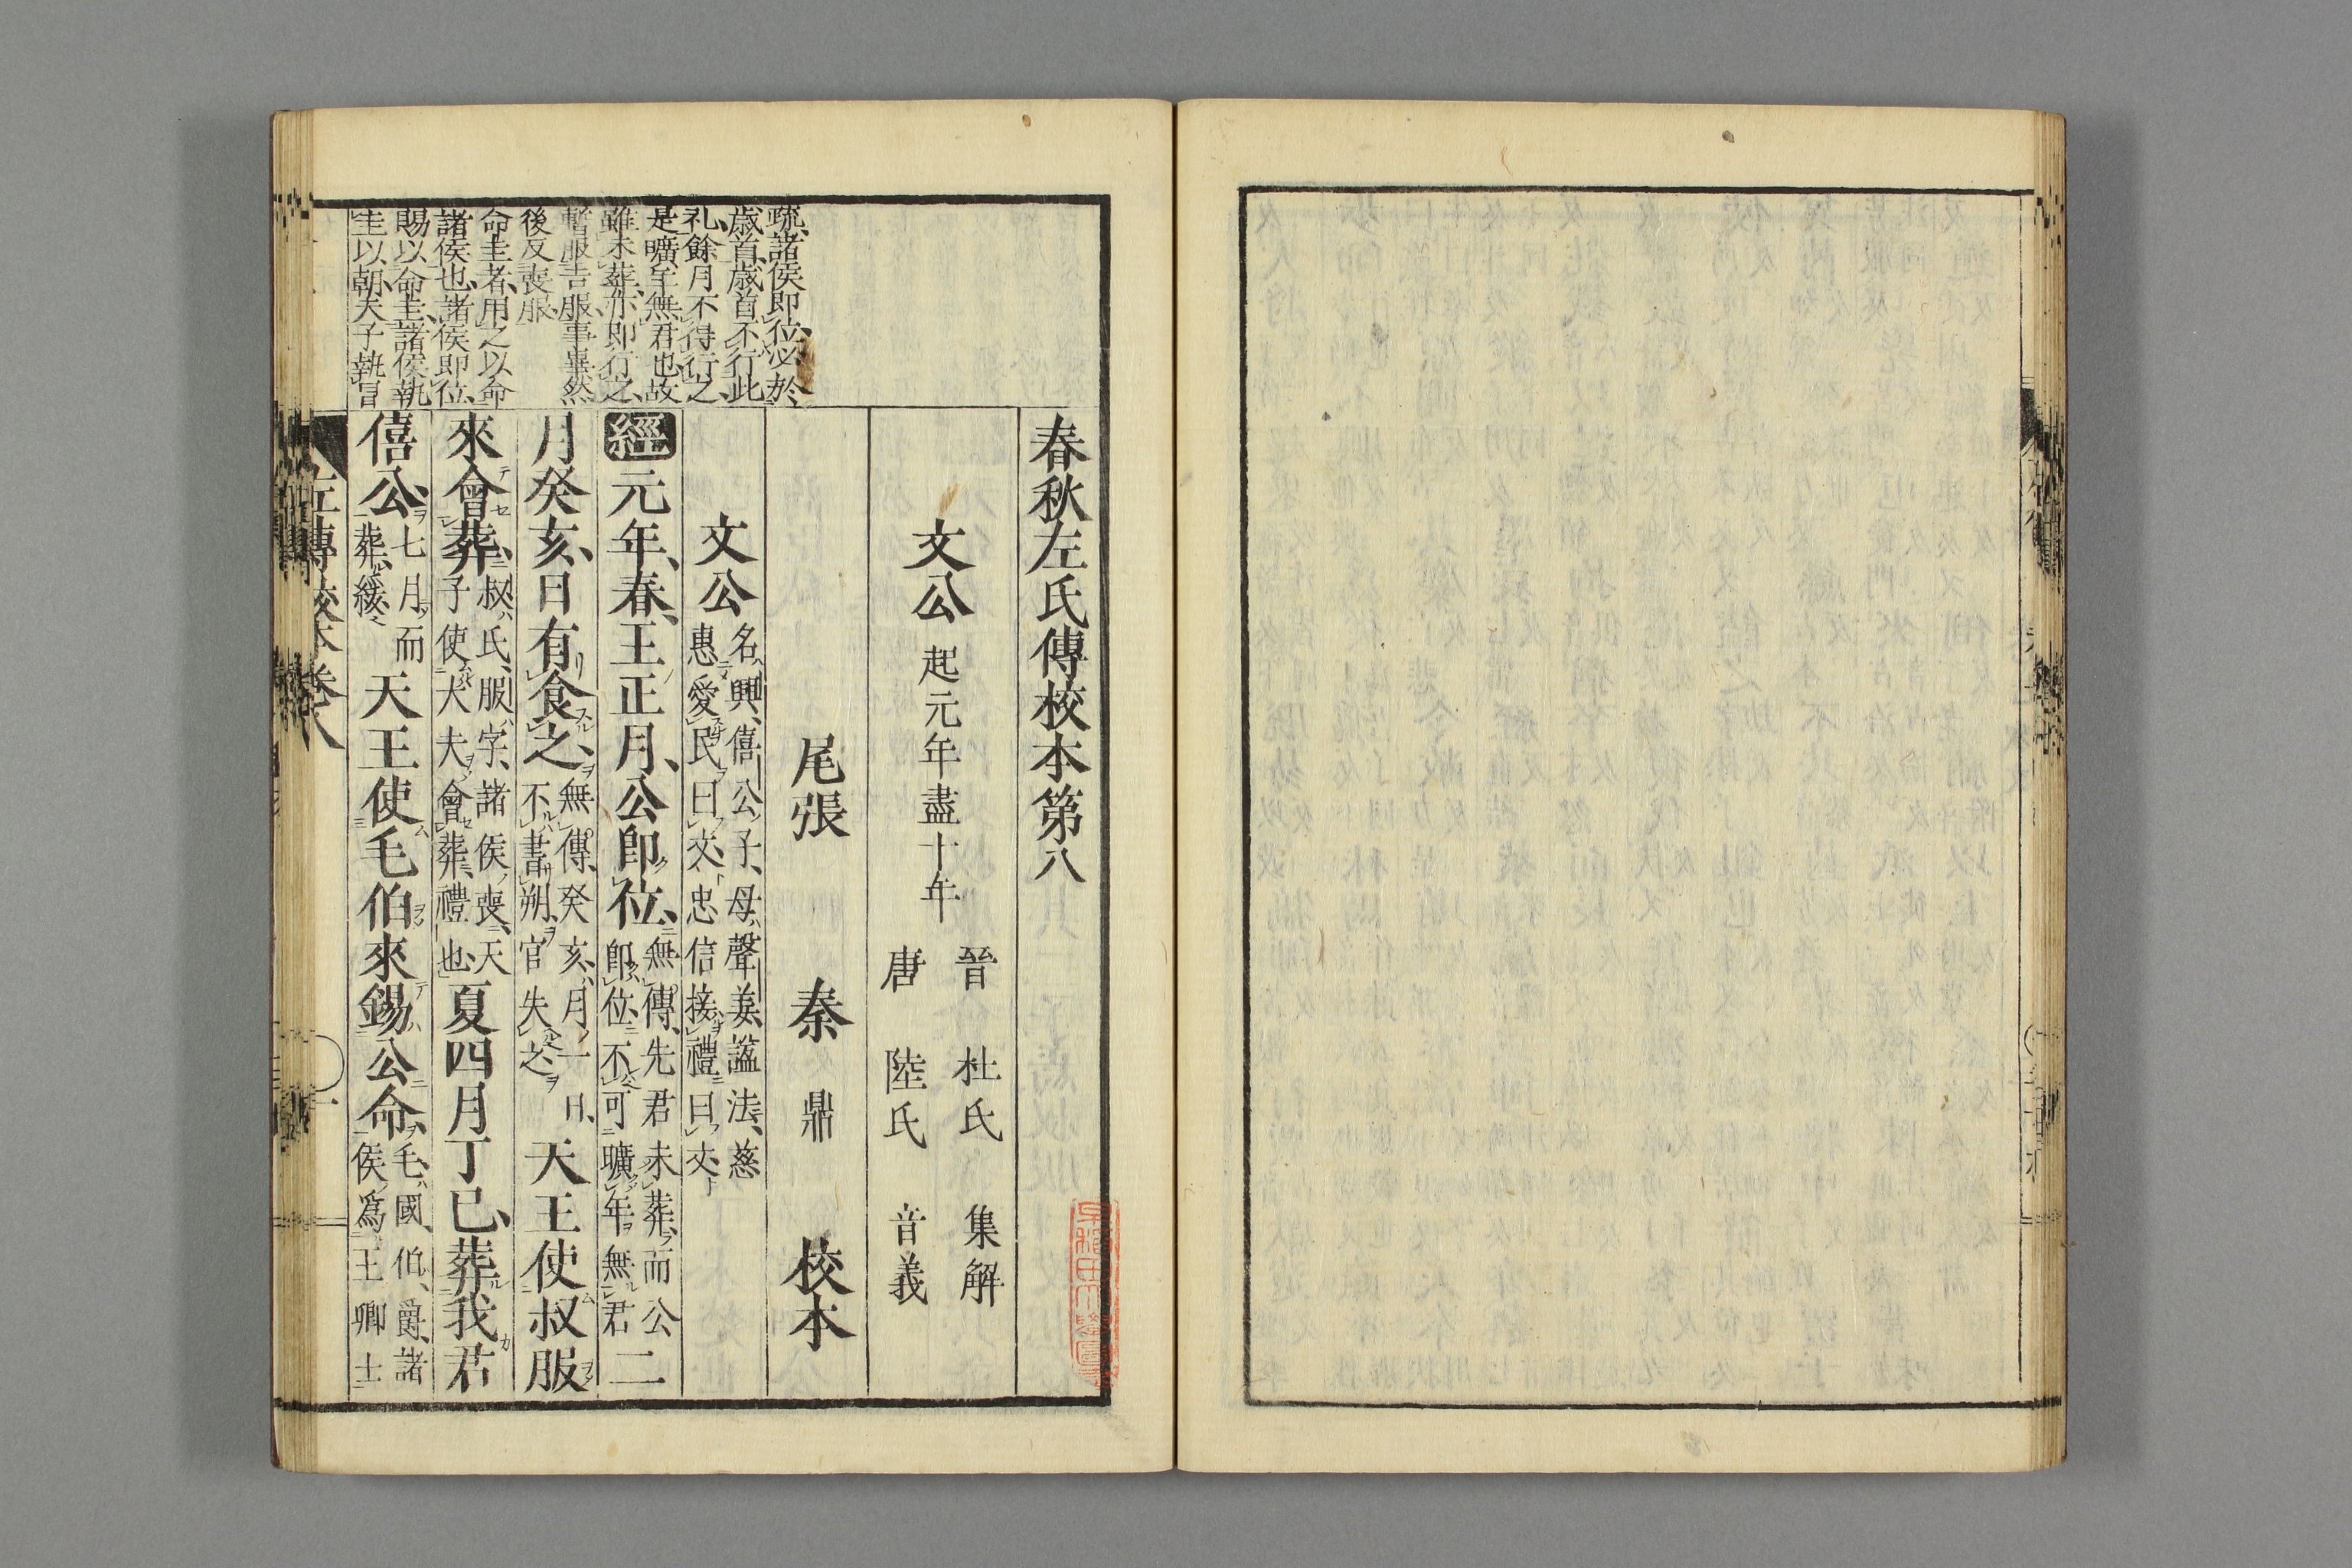 春秋左氏傳校本第八
文公起元年盡十年
晉杜氏集解
唐陸氏音義
尾張秦鼎校本
文公名興、僖公子、母聲姜、謚法、慈
惠愛民曰文、忠信接禮曰文
經元年、春、王正月、公即位、無傳、先君未葬、而公
即位、不可曠年無君二
月癸亥、日有食之、無傳、癸亥、月一日、
不書朔、官失之天王使叔服
來會葬、叔氏、服字、諸侯喪、天
子使大夫會葬、禮也、夏四月丁巳、葬我君
僖公、七月而
葬、緩、天王使毛伯來錫公命、毛、國、伯、爵、諸
侯爲王卿士
疏、諸侯即位、必於
歳首、歳首不行此
礼、餘月不得行之、
是曠年無君也、故
雖未葬、亦即行之、
暫服吉服、事畢然
後反喪服、
命圭者、用之以命
諸侯也、諸侯即位、
賜以命圭、諸侯執
圭以朝、天子執冒
左傳校本卷八